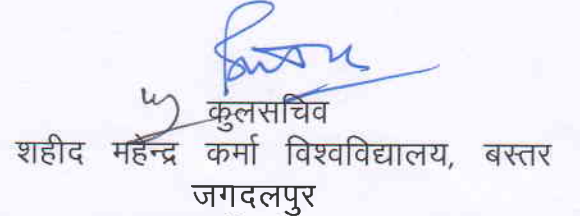 कुलसचिव
शहीद महेन्द्र कर्मा विश्वविद्यालय, बस्तर
जगदलपुर